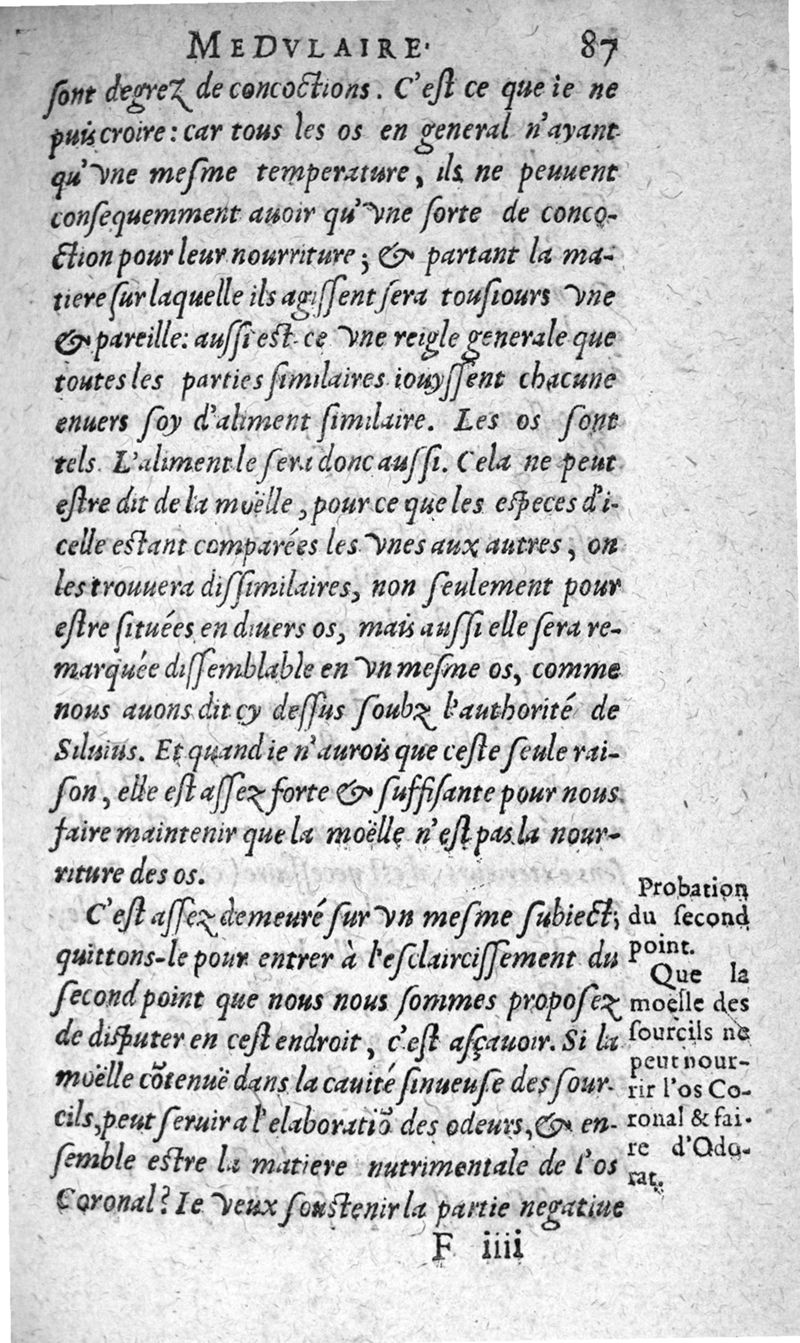 MEDVLAIRE. 87
ſont degrez de concoctions. C'eſt ce que ie ne
puis croire: car tous les os en general n'ayant
qu'vne meſme temperature, ils ne peuuent
conſequemment auoir qu'vne ſorte de conco-
ction pour leur nourriture; & partant la ma-
tiere ſur laquelle ils agiſſent ſera touſiours vne
& pareille: auſſi eſt ce vne reigle generale que
toutes les parties ſimilaires iouyſſent chacune
enuers ſoy d'aliment ſimilaire. Les os ſont
tels. L'aliment le ſera donc auſſi. Cela ne peut
eſtre dit de la moëlle, pour ce que les eſpeces d'i-
celle eſtant comparées les vnes aux autres, on
les trouuera diſſimilaires, non ſeulement pour
eſtre ſituées en diuers os, mais auſſi elle ſera re-
marquée diſſemblable en vn meſme os, comme
nous auons dit cy deſſus ſoubz l'authorité de
Siluius. Et quand ie n'aurois que ceſte ſeule rai-
ſon, elle eſt aſſez forte & ſuffiſante pour nous
faire maintenir que la moëlle n'eſt pas la nour-
riture des os.
C'eſt aſſez demeuré ſur vn meſme ſubiect;
quittons-le pour entrer à l'eſclairciſſement du
ſecond point que nous nous ſommes propoſez
de diſputer en ceſt endroit, c'eſt aſçauoir. Si la
moëlle cõtenuë dans la cauité ſinueuſe des ſour-
cils, peut ſeruir a l'elaboratiõ des odeurs, & en-
ſemble eſtre la matiere nutrimentale de l'os
Coronal? Ie veux ſouſtenir la partie negatiue
Probation
du ſecond
point.
Que la
moëlle des
ſourcils ne
peut nour-
rir l'os Co-
ronal & fai-
re d'Odo-
rat.
F iiii